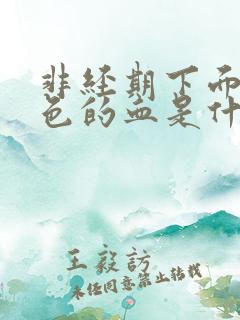 非经期下面
色的血是什
王毅訪
未经同意禁止转载